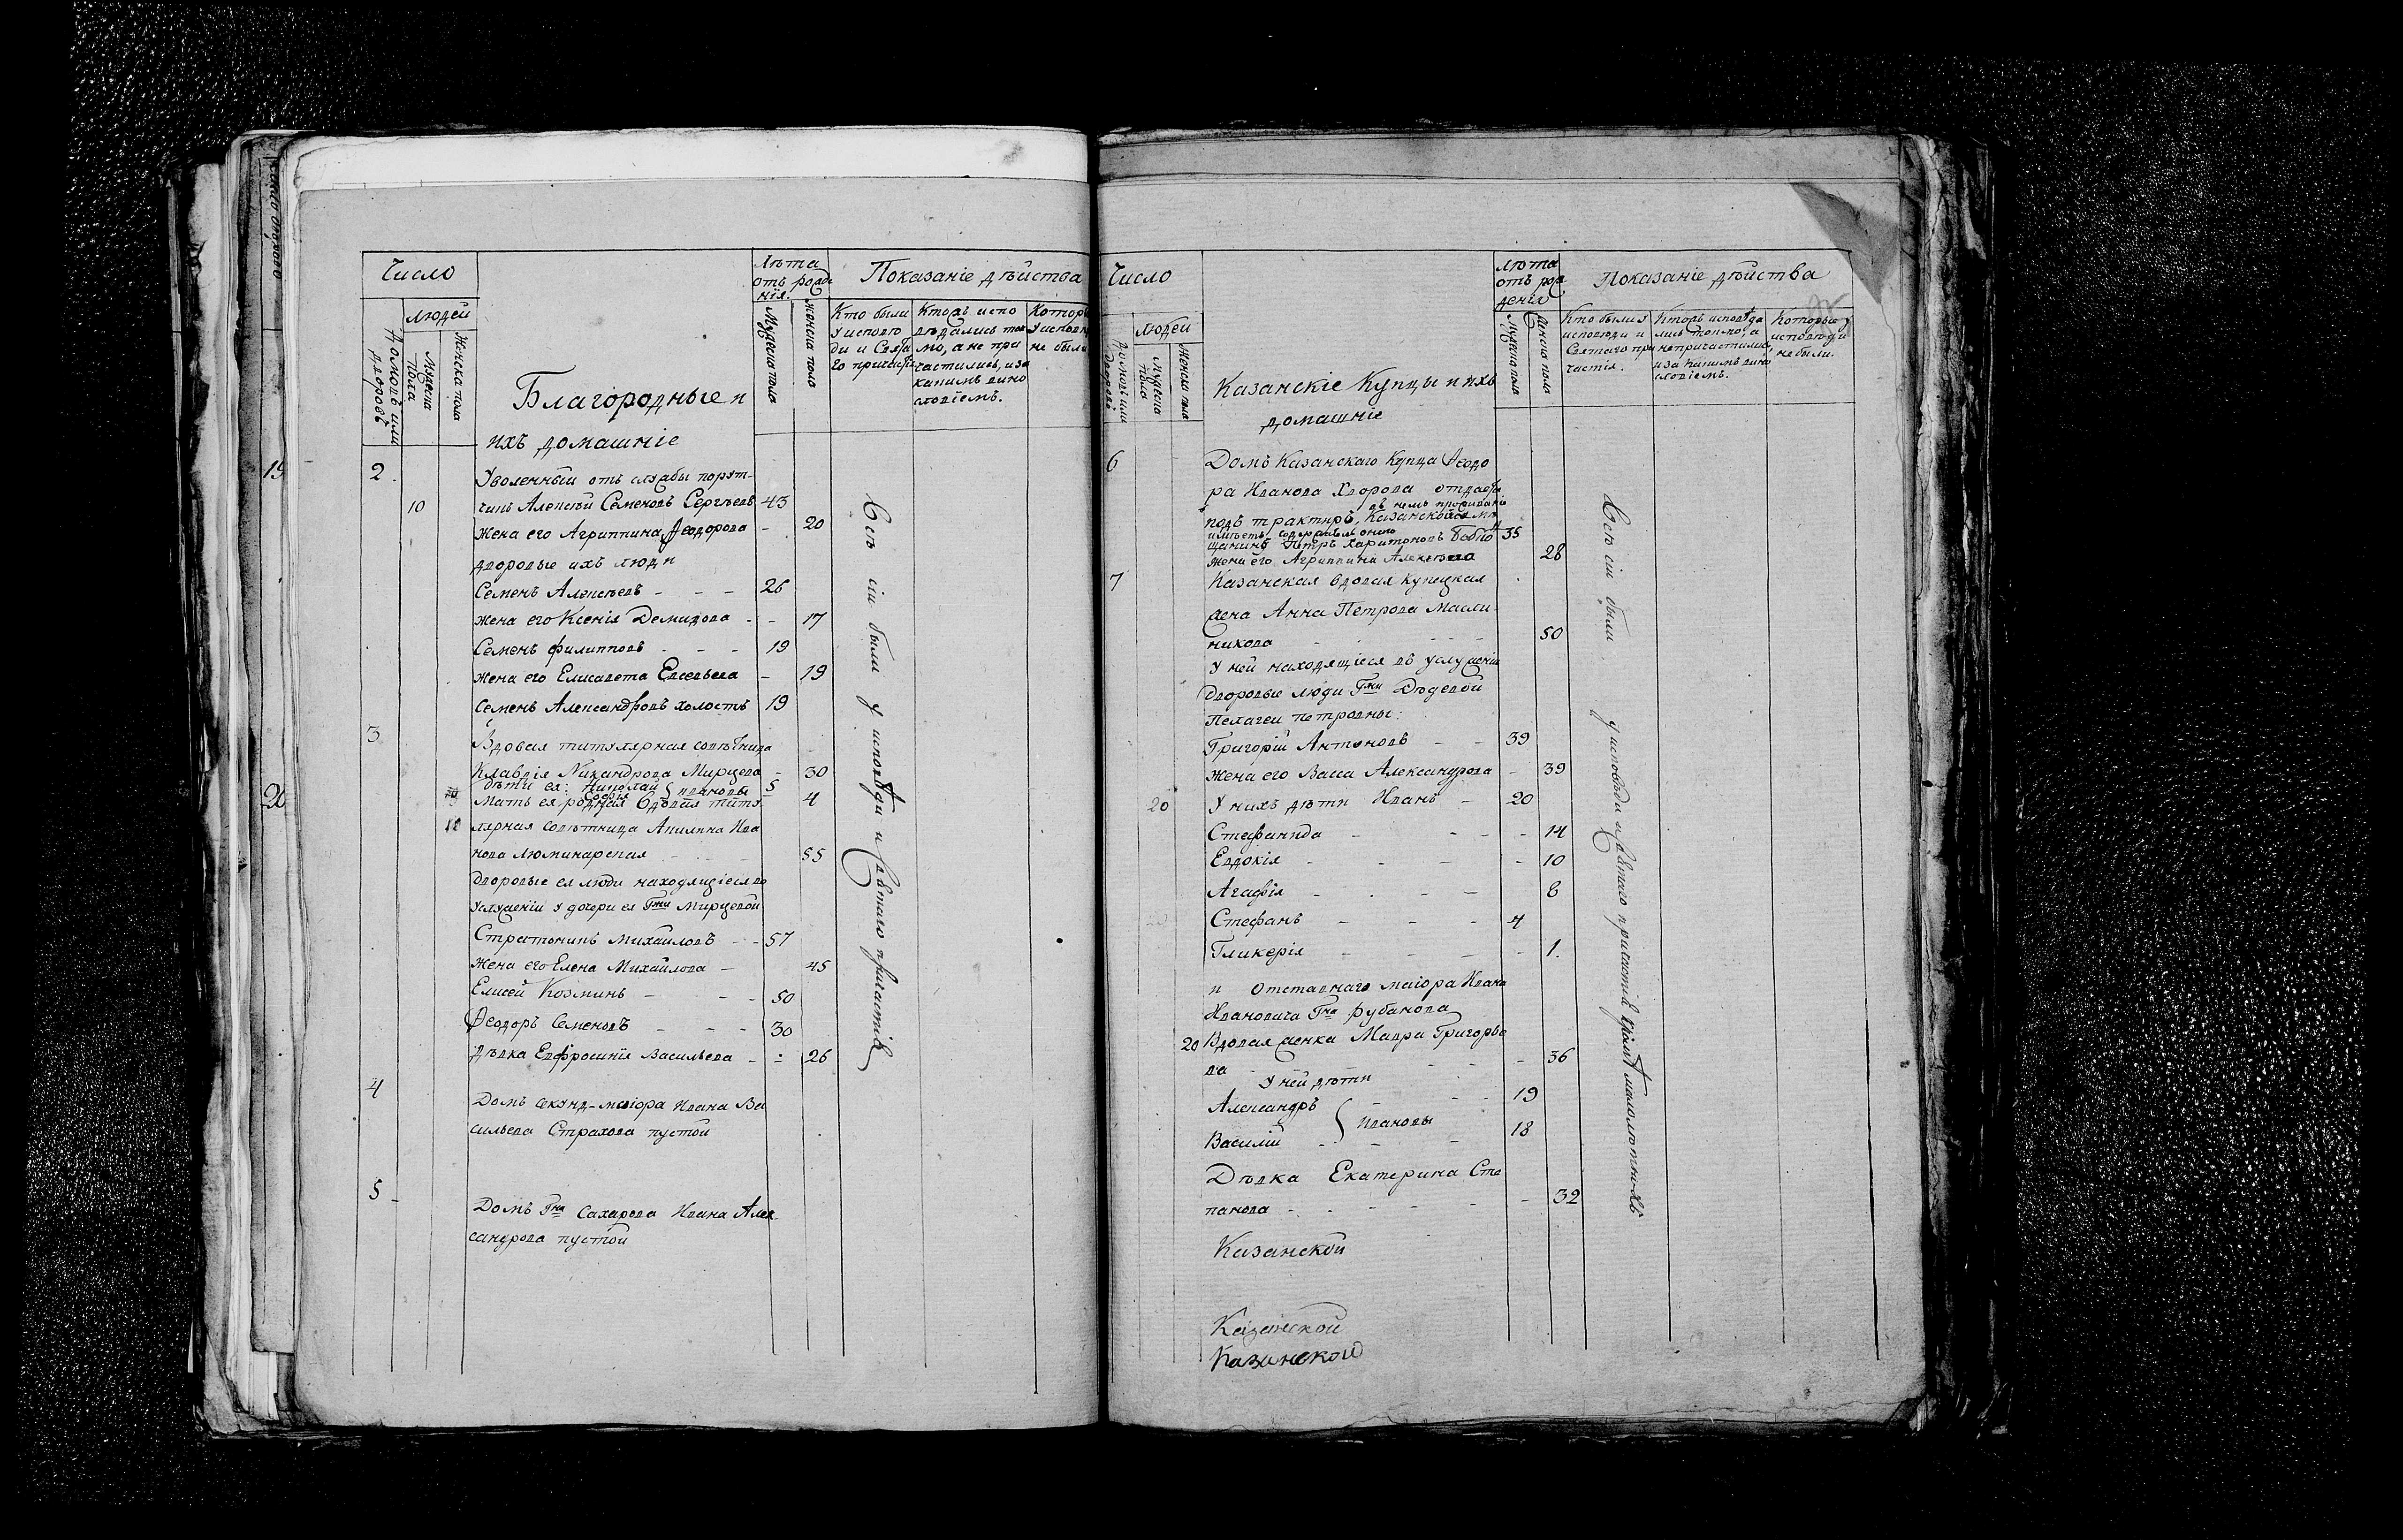 Число
людей
Домовъ или дворовъ
Мужеска пола
Женска пола
Лѣта
отъ рожде
нія.
Мужеска пола
женска пола
Показаніе дѣйства
Кто были
у исповѣ
ди и Свята
го причастія
Кторѣ испо
вѣдались ток
мо, а не при
частились, и за
какимъ вино
словіемъ.
Которы
у исповѣ
не были
Благородные и
ихъ домашніе
19
2.
Уволенный отъ службы порут-
10
чикъ Алексѣй Семеновъ Сергѣевъ 43
жена его Агриппина Ѳеодорова - 20
дворовые ихъ люди
Семенъ Алексѣевъ - - - 26
жена его Ксенія Демидова - - 17
Семенъ Филипповъ - - - 19
жена его Елисавета Евсевьева - 19
Семенъ Александровъ холостъ 19
3
Вдовая титулярная совѣтница
Клавдія Никандрова Мирцева - 30
дѣти ея: Николай } Ивановы 5
Софія 4
20
Мать ея родная вдовая титу
10
лярная совѣтница Акилина Ива
нова Люминарская - - 55
Дворовые ея люди находящіеся во
услуженіи у дочери ея Гжи Мирцевой
Стратоникъ Михайловъ - - 57
жена его Елена Михайлова - 45
Елисей Козминъ - - - 50
Ѳеодоръ Семеновъ - - - 30
дѣвка Евфросинія Васильева - - 26
4
Домъ секунд-маіора Ивана Ва
сильева Страхова пустой
5 -
Домъ Гна Сахарова Ивана Алек
сандрова пустой
Всѣ сіи были у исповѣди и Святаго причастія
Число
людей
Домовъ или дворовъ
Мужеска пола
Женска пола
Лѣта
отъ рож
денія
Мужеска пола
Женска пола
Показаніе дѣйства
Кто были у
исповѣди и
Святаго при
частія.
Кторѣ исповѣда
лись токмо, а
не причастились,
и за какимъ вино
словіемъ.
Которые у
исповѣди
не были.
Казанскіе Купцы и ихъ
домашніе
6
Домъ Казанскаго Купца Ѳеодо
ра Иванова Хворова отдаетъ
подъ трактиръ, Казанскій мѣ
въ немъ проживаніе
имѣетъ содержатель онаго
щанинъ Петръ Харитоновъ 35
жена его Агриппина Алексѣева 28
7
Казанская вдовая купецкая
жена Анна Петрова Масли
никова - - - - 50
У ней находящіеся въ услуженіи
Дворовые люди Гжи Дѣдевой
Пелагеи петровны:
Григорій Антоновъ - - 39
жена его Васса Александрова - 39
20
У нихъ дѣти Иванъ - 20
Стефанида - - - - 14
Евдокія - - - - 10
Агафія - - - - 6
Стефанъ - - - 4
Гликерія - - - - 1.
и Отставнаго маіора Ивана
Ивановича Гна Рубанова
20
Вдовая женка Мавра Григорье
ва - - - - 36
У ней дѣти
Александръ } Ивановы - - 19
Василій - - - 18
Дѣвка Екатерина Сте
панова - - - - - - 32
Казанской
Казанской
Казанской
Всѣ сіи были у исповѣди и Святаго причастія кромѣ малолѣтнихъ